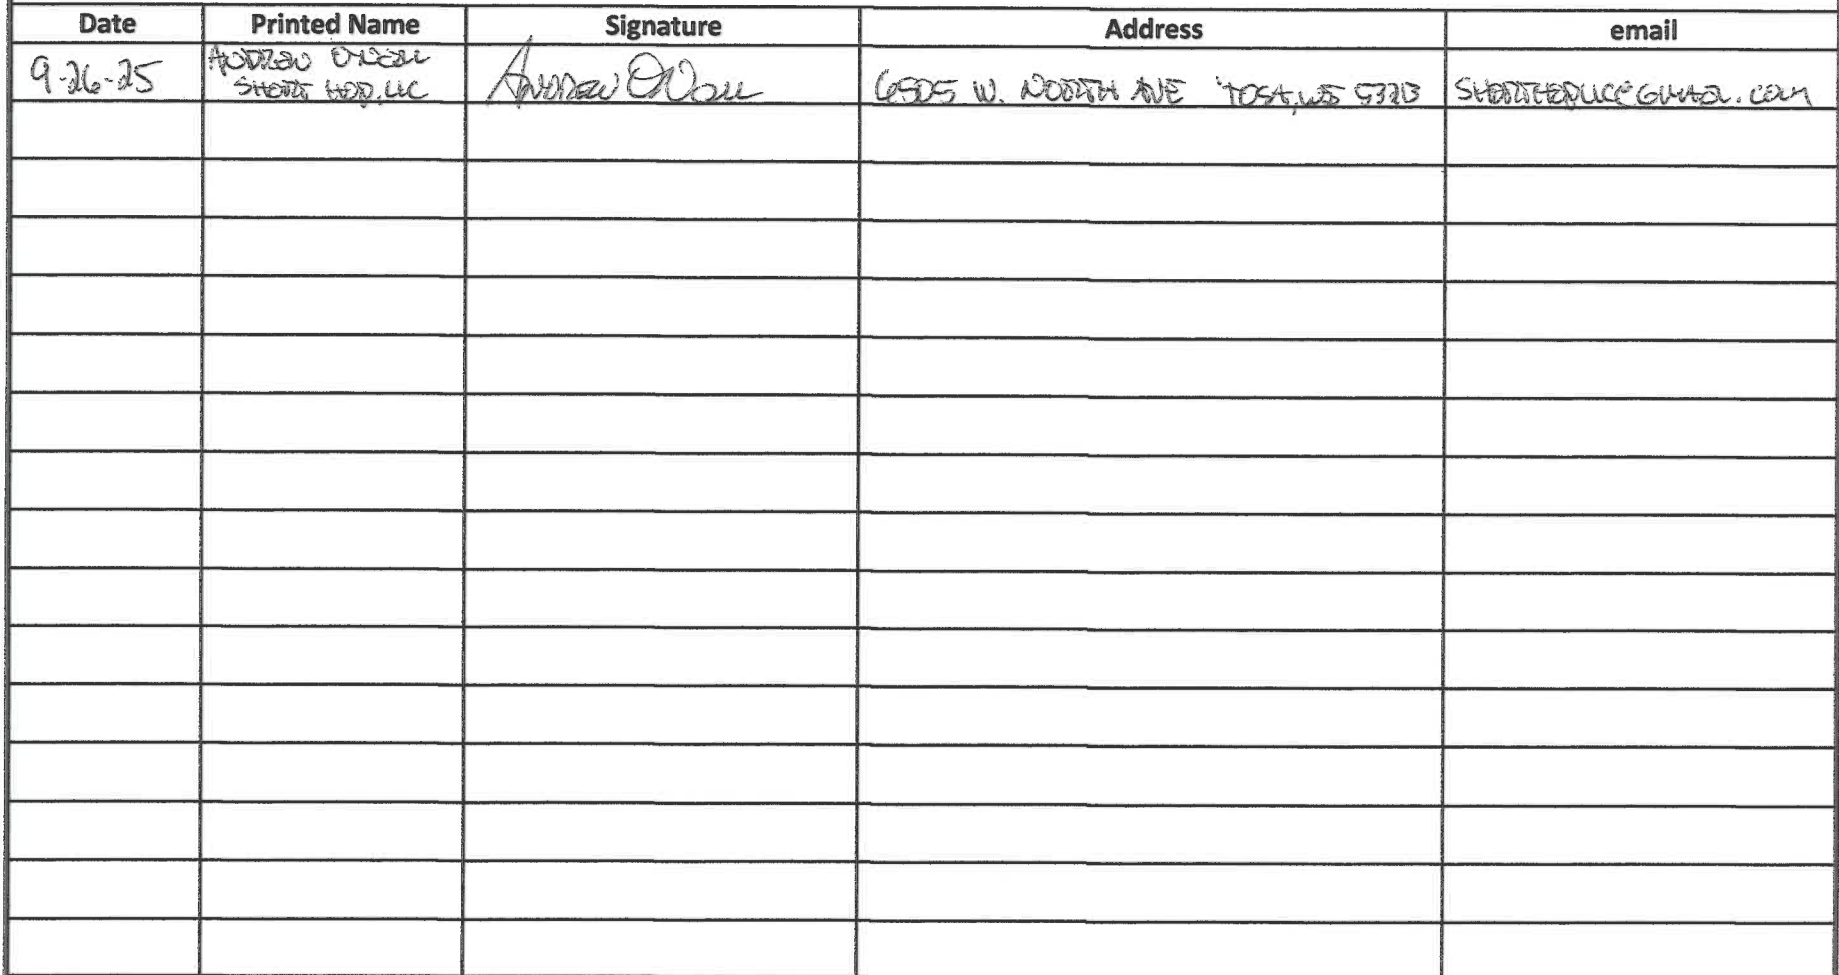 Date Printed Name Signature Address email
9-26-25 ANDREW O'NEILL SHORT HOP, LLC Andrew O'Neill 6505 W. NORTH AVE 'TOSA, WI 53213 SHORTHOPLLC@GMAIL.COM